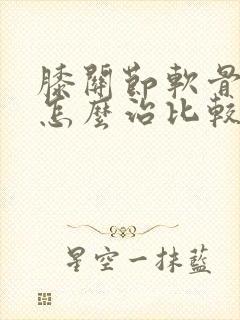 膝關節軟骨
怎麼治比較
星空一抹藍